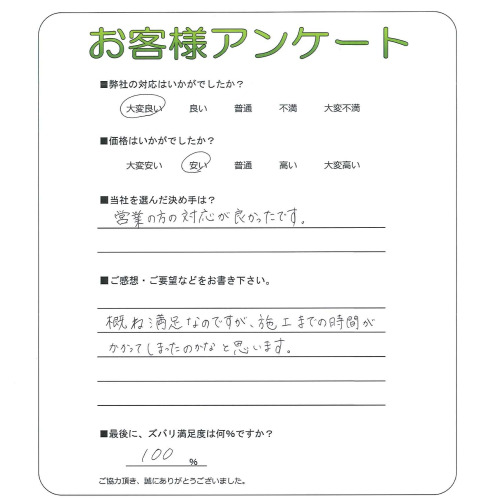 お客様アンケート
■弊社の対応はいかがでしたか？
大変良い 良い 普通 不満 大変不満
■価格はいかがでしたか？
大変安い 安い 普通 高い 大変高い
■当社を選んだ決め手は？
営業の方の対応が良かったです。
■ご感想・ご要望などをお書き下さい。
概ね満足なのですが、施工までの時間が
かかってしまったのかなと思います。
■最後に、ズバリ満足度は何%ですか？
100 %
ご協力頂き、誠にありがとうございました。